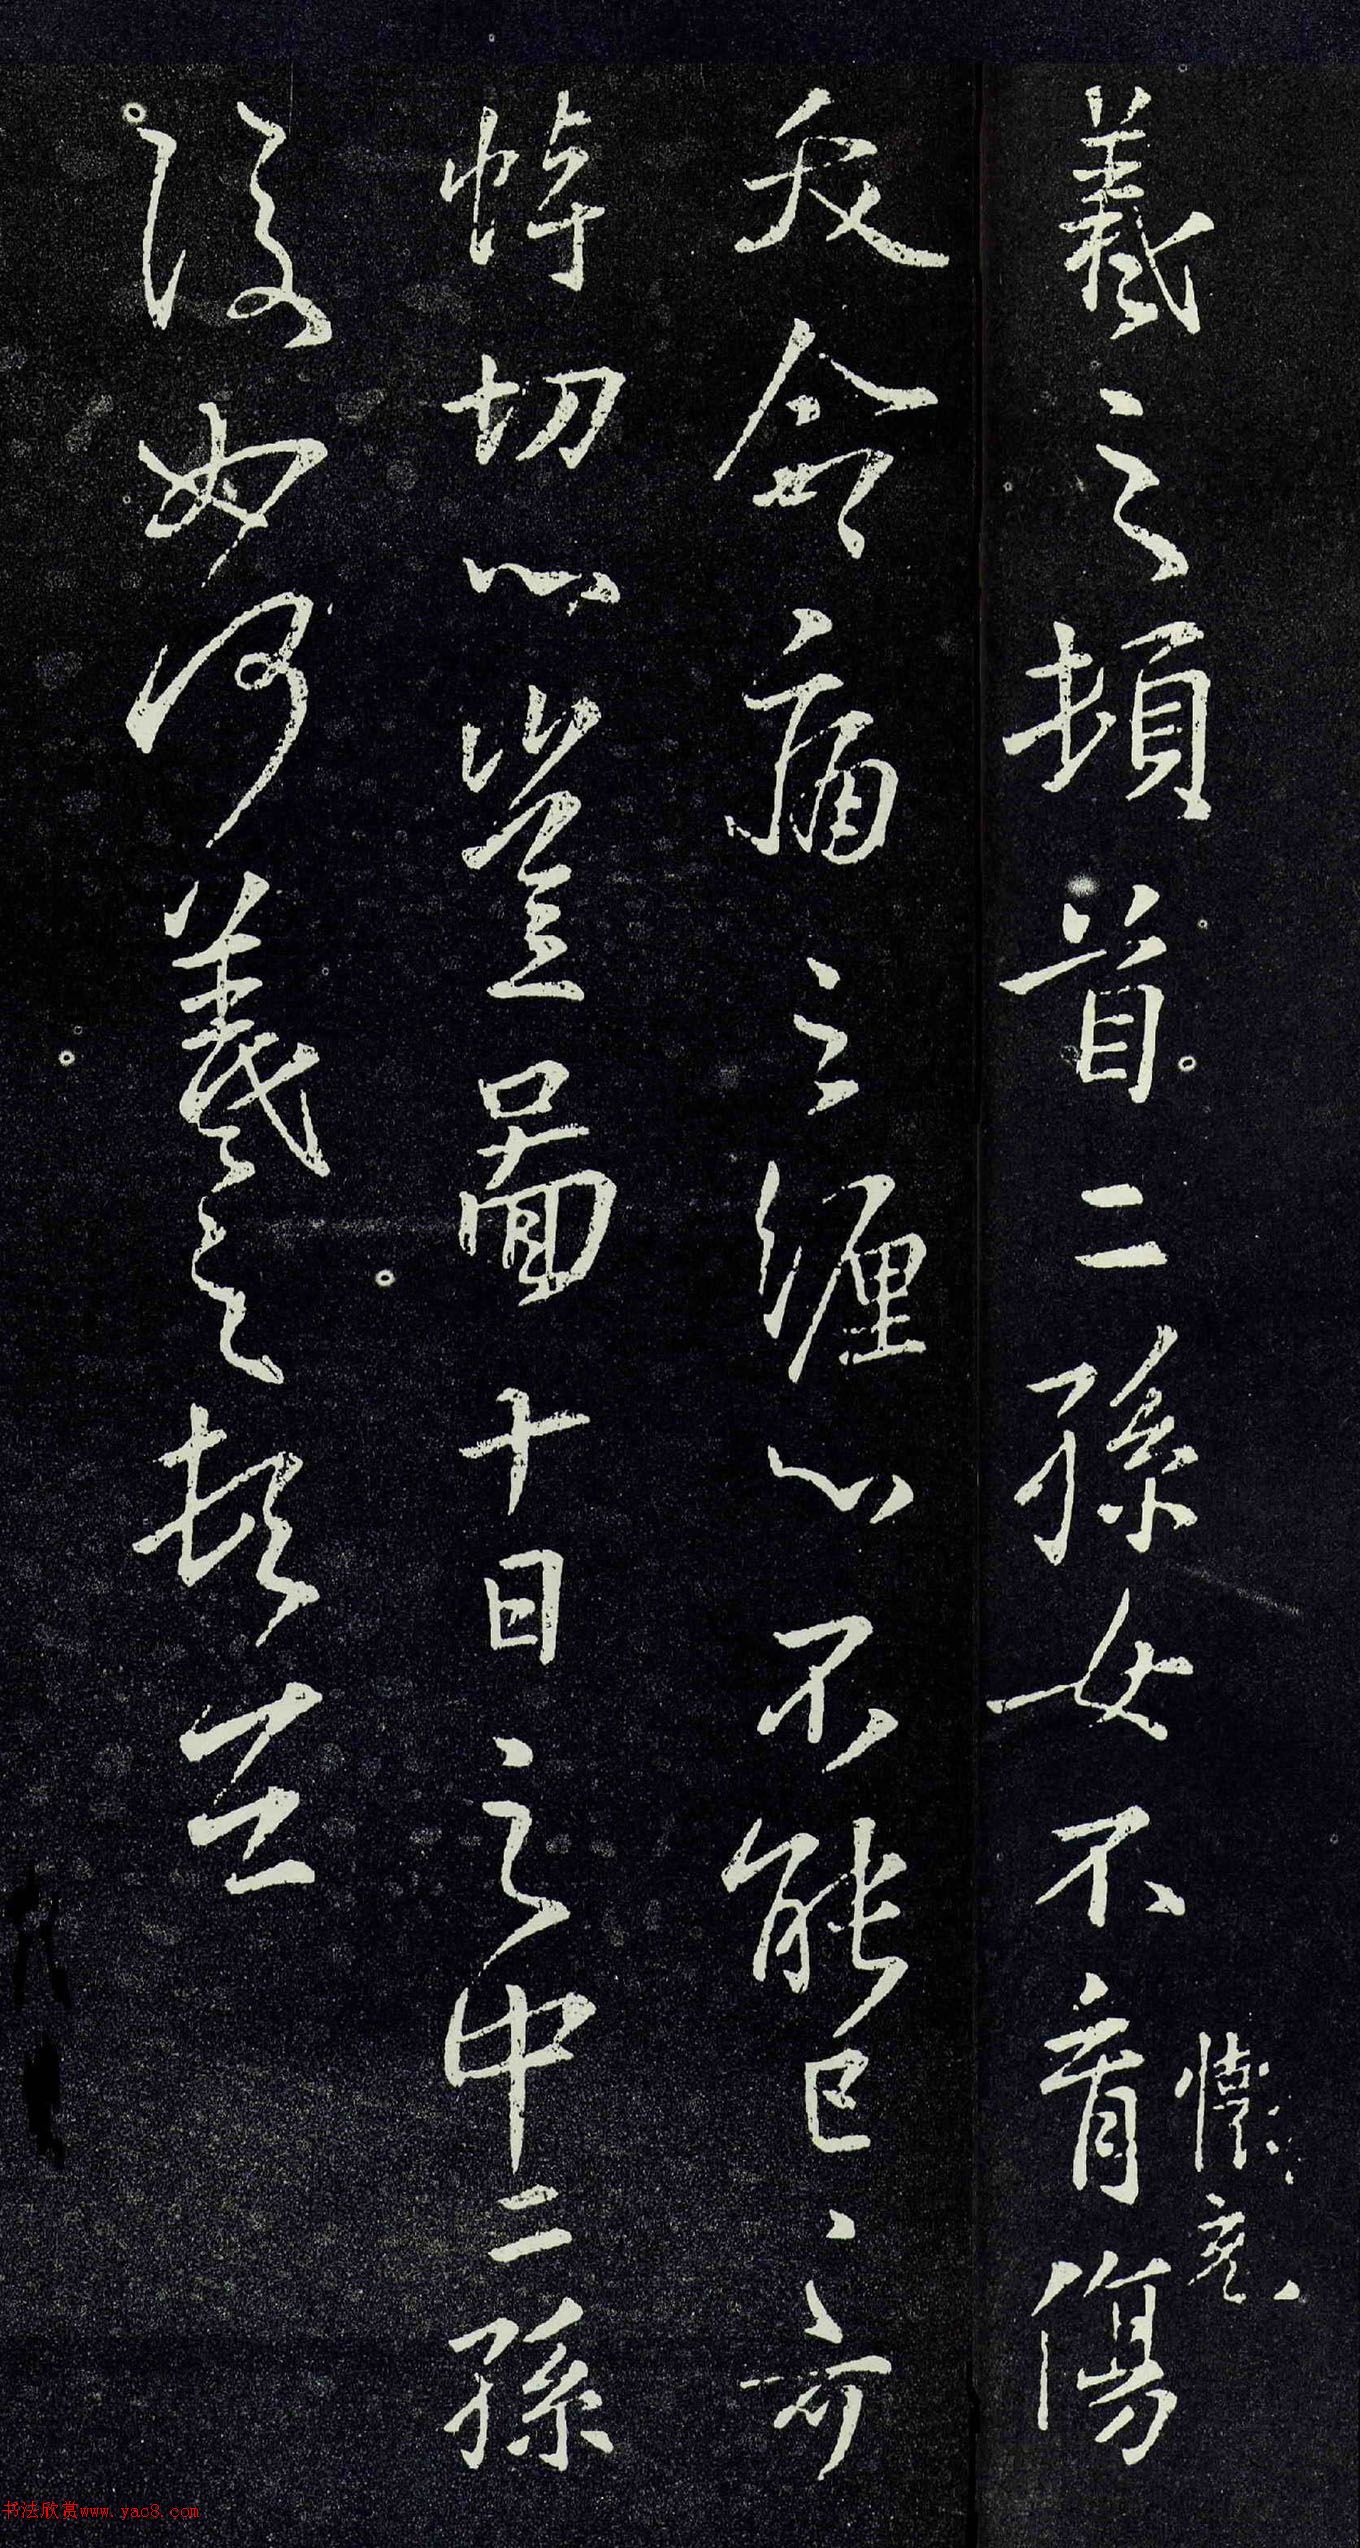 羲之頓首二孫女不育傷
懷充
夭命痛之纏心不能已已可
悼切心豈圖十日之中二孫
復如何羲之頓首
书法欣赏www.yac8.com